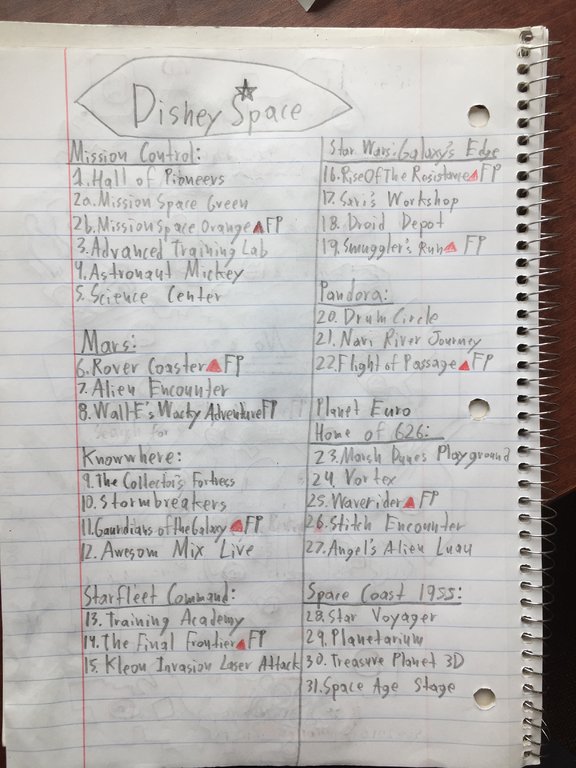 Disney Space
Mission Control:
1. Hall of Pioneers
2a. Mission Space Green
2b. Mission Space Orange FP
3. Advanced Training Lab
4. Astronaut Mickey
5. Science Center
Mars:
6. Rover Coaster FP
7. Alien Encounter
8. Wall-E's Wacky Adventure FP
Knowwhere:
9. The Collector's Fortress
10. Stormbreakers
11. Gaurdians of the Galaxy FP
12. Awesom Mix Live
Starfleet Command:
13. Training Academy
14. The Final Frontier FP
15. Kleon Invasion Laser Attack
Star Wars: Galaxy's Edge
16. Rise Of The Resistance FP
17. Savi's Workshop
18. Droid Depot
19. Smuggler's Run FP
Pandora:
20. Drum Circle
21. Navi River Journey
22. Flight of Passage FP
Planet Euro
Home of 626:
23. Marsh Dunes Playground
24. Vortex
25. Waverider FP
26. Stitch Encounter
27. Angel's Alien Luau
Space Coast 1955:
28. Star Voyager
29. Planetarium
30. Treasure Planet 3D
31. Space Age Stage